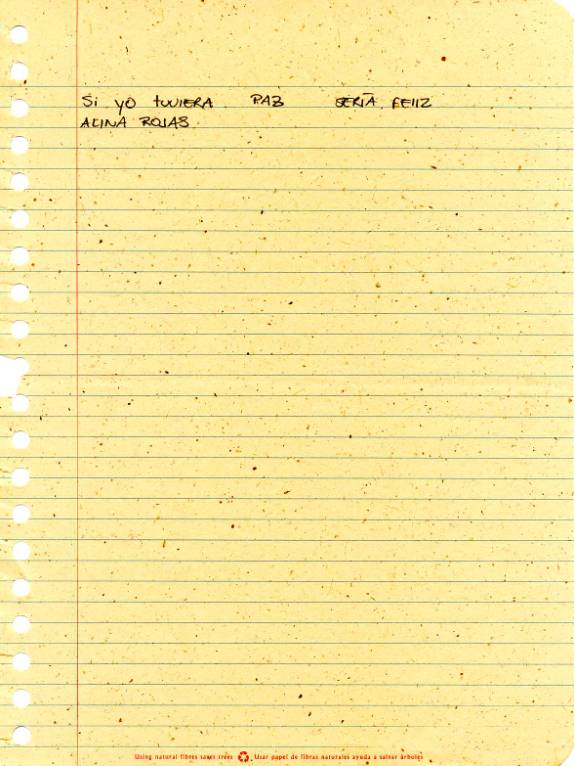 Si yo tuviera PAZ SERÍA FELIZ
ALINA ROJAS
Using natural fibres saves trees Usar papel de fibras naturales ayuda a salvar árboles